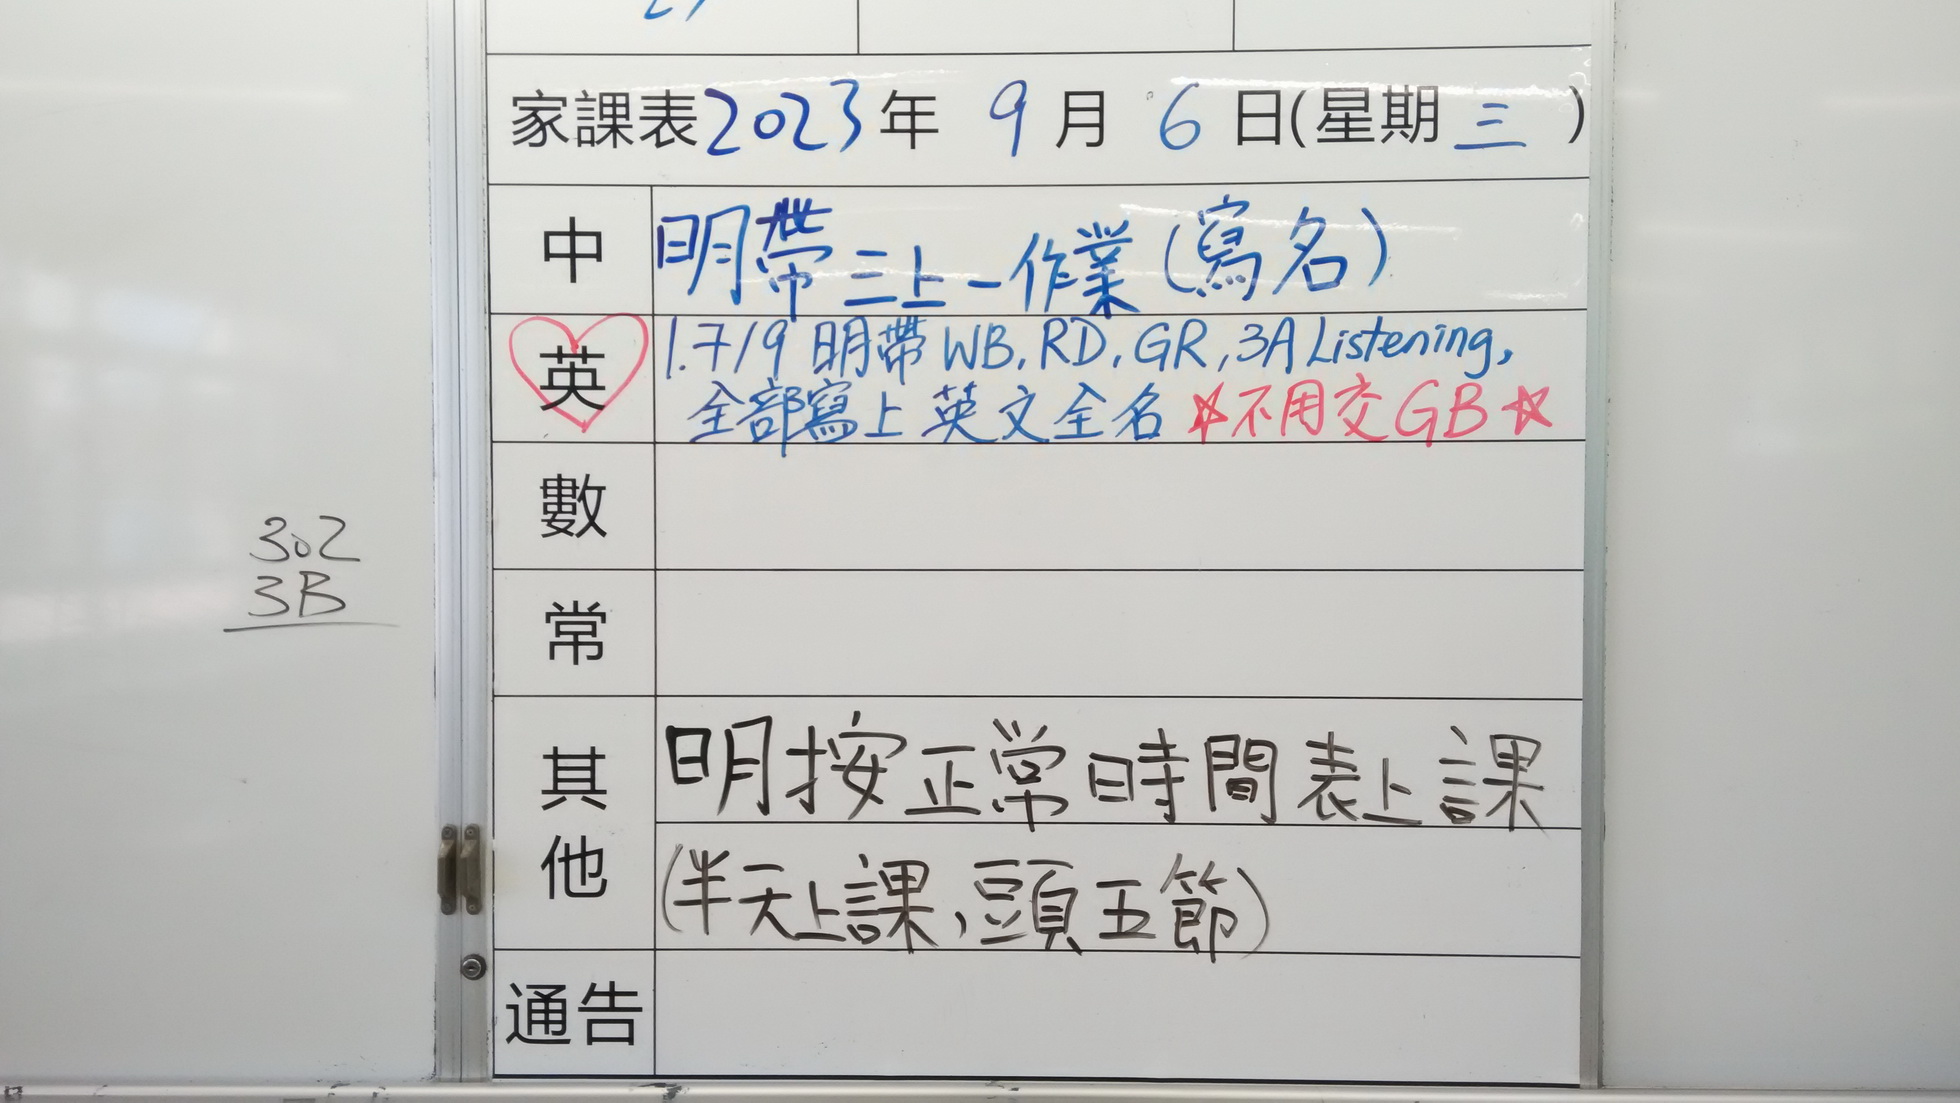 家課表2023年 9月 6日(星期三)
中 明帶三上一作業(寫名)
英 1.7/9 明帶WB, RD, GR, 3A Listening,
全部寫上英文全名 ☆不用交GB☆
數
302
3B
常
其他 明按正常時間表上課
(半天上課,頭五節)
通告